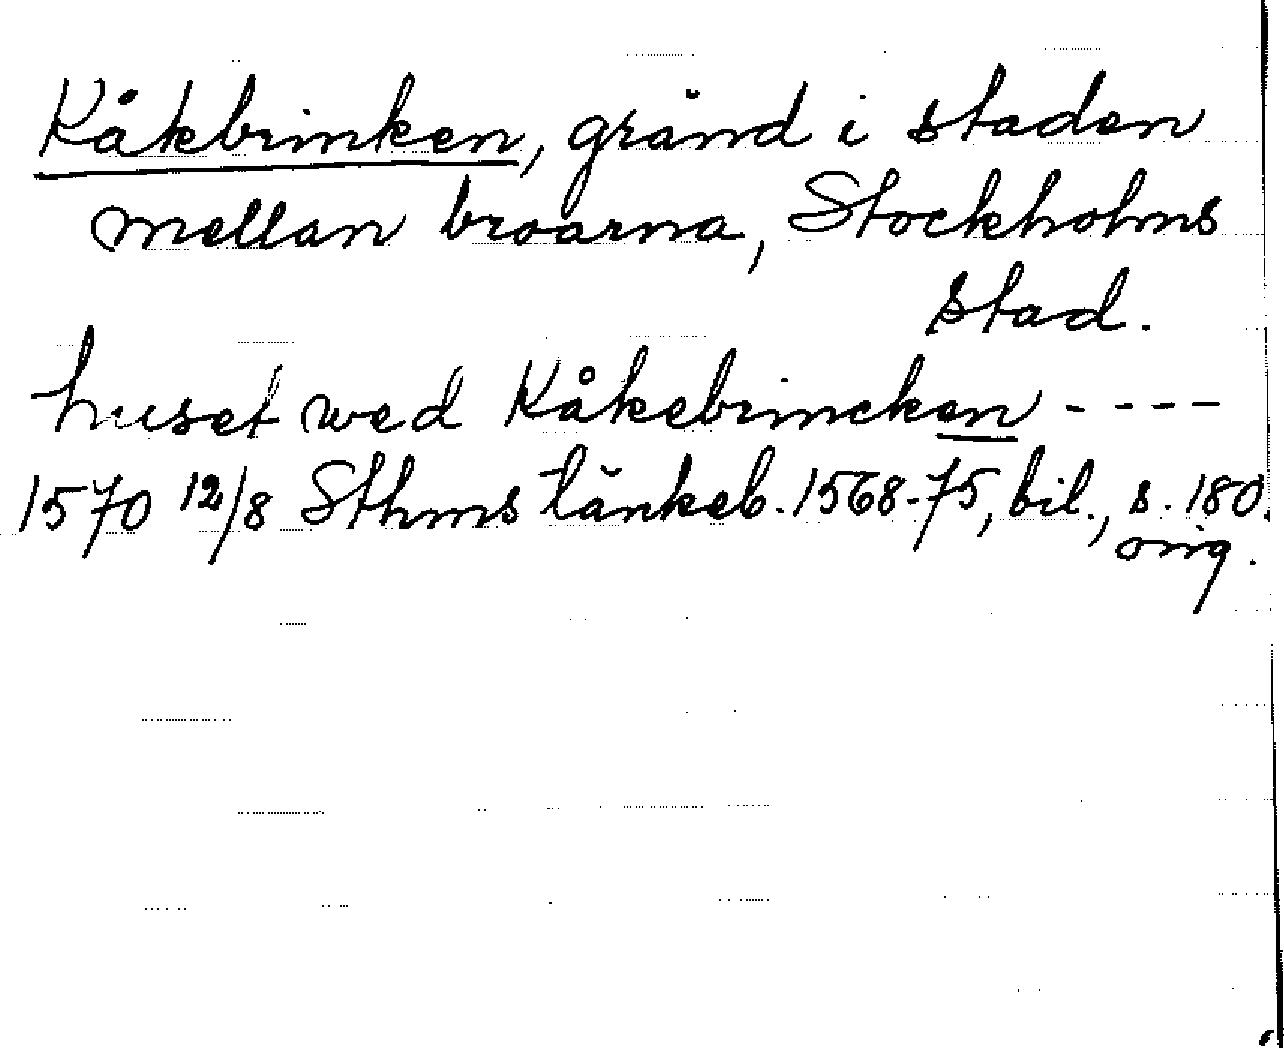 Kåkbrinken, gränd i staden
mellan broarna, Stockholms
stad.
huset wed Kåkebrincken - - - -
1570 12/8 Sthms tänkeb. 1568-75, bil., s. 180.
orig.